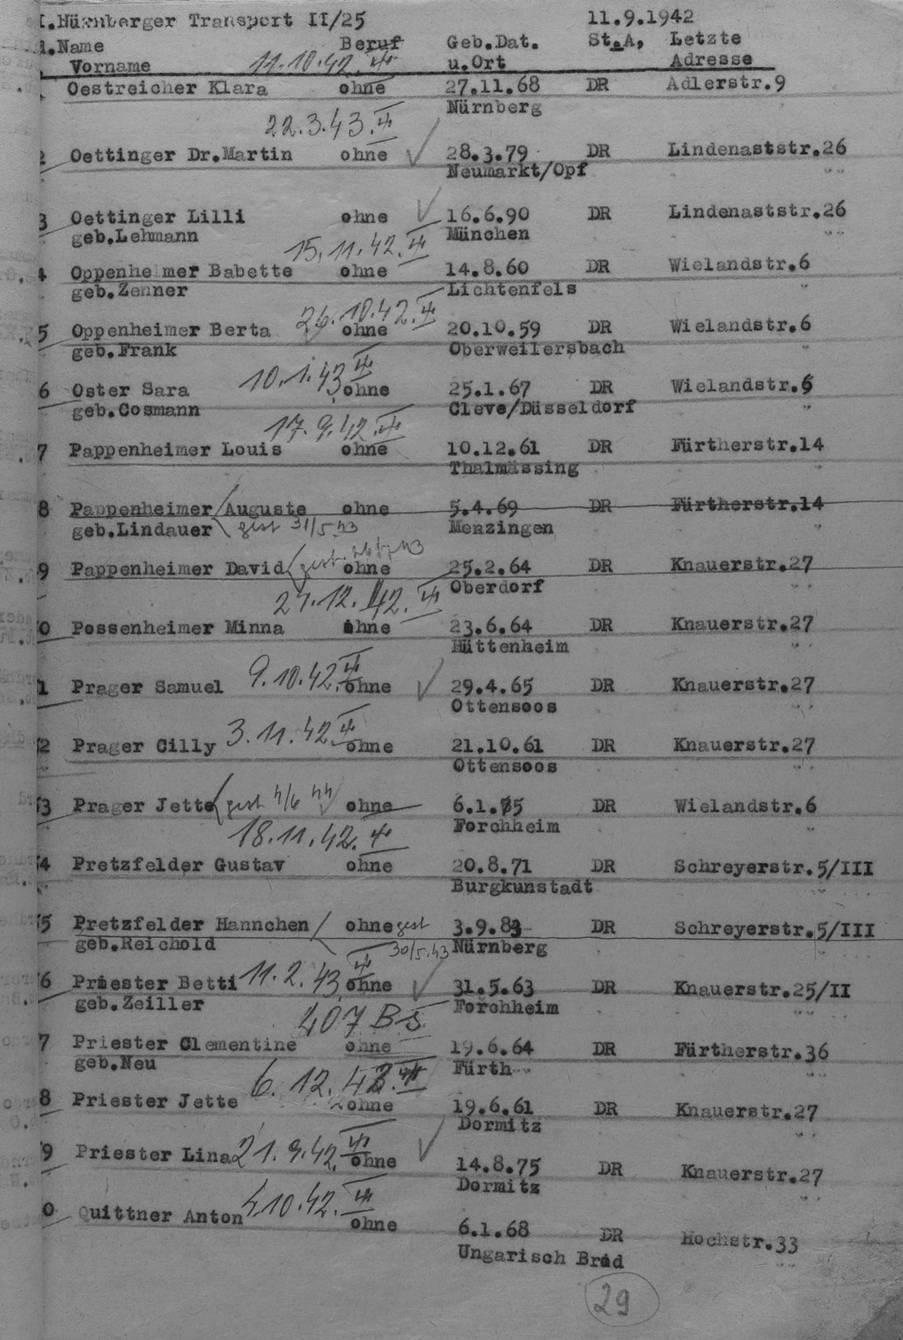 I.Nürnberger Transport II/25 11.9.1942
.Name Beruf Geb.Dat. St.A, Letzte
Vorname 11.10.42. u.Ort Adresse
Oestreicher Klara ohne 27.11.68 DR Adlerstr.9
Nürnberg
22.3.43.
2 Oettinger Dr.Martin ohne 28.3.79 DR Lindenaststr.26
Neumarkt/Opf "
3 Oettinger Lilli ohne 16.6.90 DR Lindenaststr.26
geb.Lehmann München "
15.11.42.
4 Oppenheimer Babette ohne 14.8.60 DR Wielandstr.6
geb.Zenner Lichtenfels "
26.10.42.
5 Oppenheimer Berta ohne 20.10.59 DR Wielandstr.6
geb.Frank Oberweilersbach "
6 Oster Sara 10.1.43 ohne 25.1.67 DR Wielandstr.6
geb.Cosmann Cleve/Düsseldorf "
17.9.42.
7 Pappenheimer Louis ohne 10.12.61 DR Fürtherstr.14
Thalmässing "
8 Pappenheimer Auguste ohne 5.4.69 DR Fürtherstr.14
geb.Lindauer gest 31/5 43 Menzingen "
9 Pappenheimer David gest. ohne 25.2.64 DR Knauerstr.27
Oberdorf "
27.12.42.
0 Possenheimer Minna ohne 23.6.64 DR Knauerstr.27
Hüttenheim "
1 Prager Samuel 9.10.42. ohne 29.4.65 DR Knauerstr.27
Ottensoos "
2 Prager Cilly 3.11.42. ohne 21.10.61 DR Knauerstr.27
Ottensoos "
3 Prager Jette gest 4/6 44 ohne 6.1.75 DR Wielandstr.6
Forchheim "
18.11.42.
4 Pretzfelder Gustav ohne 20.8.71 DR Schreyerstr.5/III
Burgkunstadt "
5 Pretzfelder Hannchen ohne gest 3.9.83 DR Schreyerstr.5/III
geb.Reichold 30/5.43 Nürnberg "
6 Priester Betti 11.2.43 ohne 31.5.63 DR Knauerstr.25/II
geb.Zeiller Forchheim "
407 Bš.
7 Priester Clementine ohne 19.6.64 DR Fürtherstr.36
geb.Neu Fürth "
8 Priester Jette 6.12.42. ohne 19.6.61 DR Knauerstr.27
Dormitz "
9 Priester Lina 21.9.42. ohne 14.8.75 DR Knauerstr.27
Dormitz "
0 Quittner Anton 4.10.42. ohne 6.1.68 DR Hochstr.33
Ungarisch Brod "
29